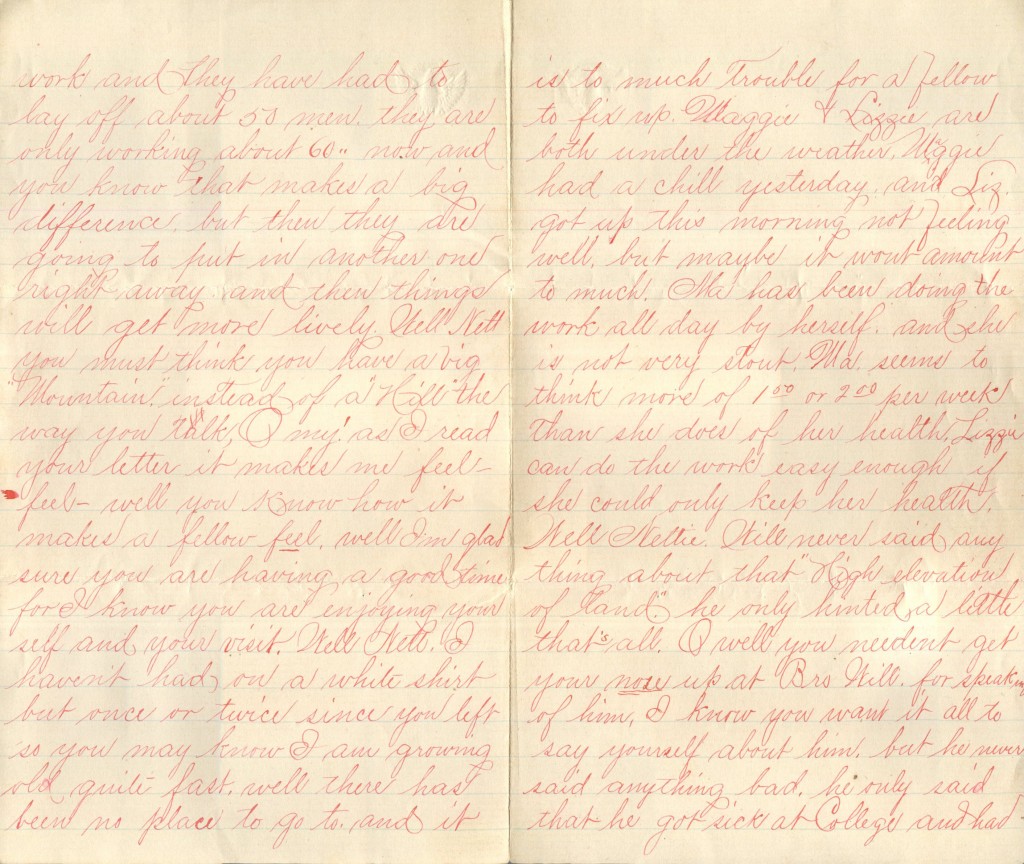 work and they have had to
lay off about 50 men. they are
only working about 60" now and
you know that makes a big
difference. but then they are
going to put in another one
right away and then things
will get more lively. Well Nett
you must think you have a big
"Mountain". instead of a "Hill" the
way you talk. O my! as I read
your letter it makes me feel-
feel- well you know how it
makes a fellow feel. well I'm glad
sure you are having a good time
for I know you are enjoying your
self and your visit. Well Nett. I
haven't had on a white shirt
but once or twice since you left
so you may know I am growing
old quite fast. well there has
been no place to go to. and it
is to much trouble for a fellow
to fix up. Maggie & Lizzie are
both under the weather. Maggie
had a chill yesterday. and Liz.
got up this morning not feeling
well, but maybe it wont amount
to much. Ma has been doing the
work all day by herself. and she
is not very stout. Ma. seems to
think more of 1 00 or 2 00 per week
than she does of her health. Lizzie
can do the work easy enough if
she could only keep her health.
Well Nellie. Will never said any
thing about that "High elevation
of land". he only hinted a little
that's all. O well you needent get
your nose up at Bro Will. for speaking
of him. I know you want it all to
say yourself about him. but he never
said anything bad. he only said
that he got sick at College and had